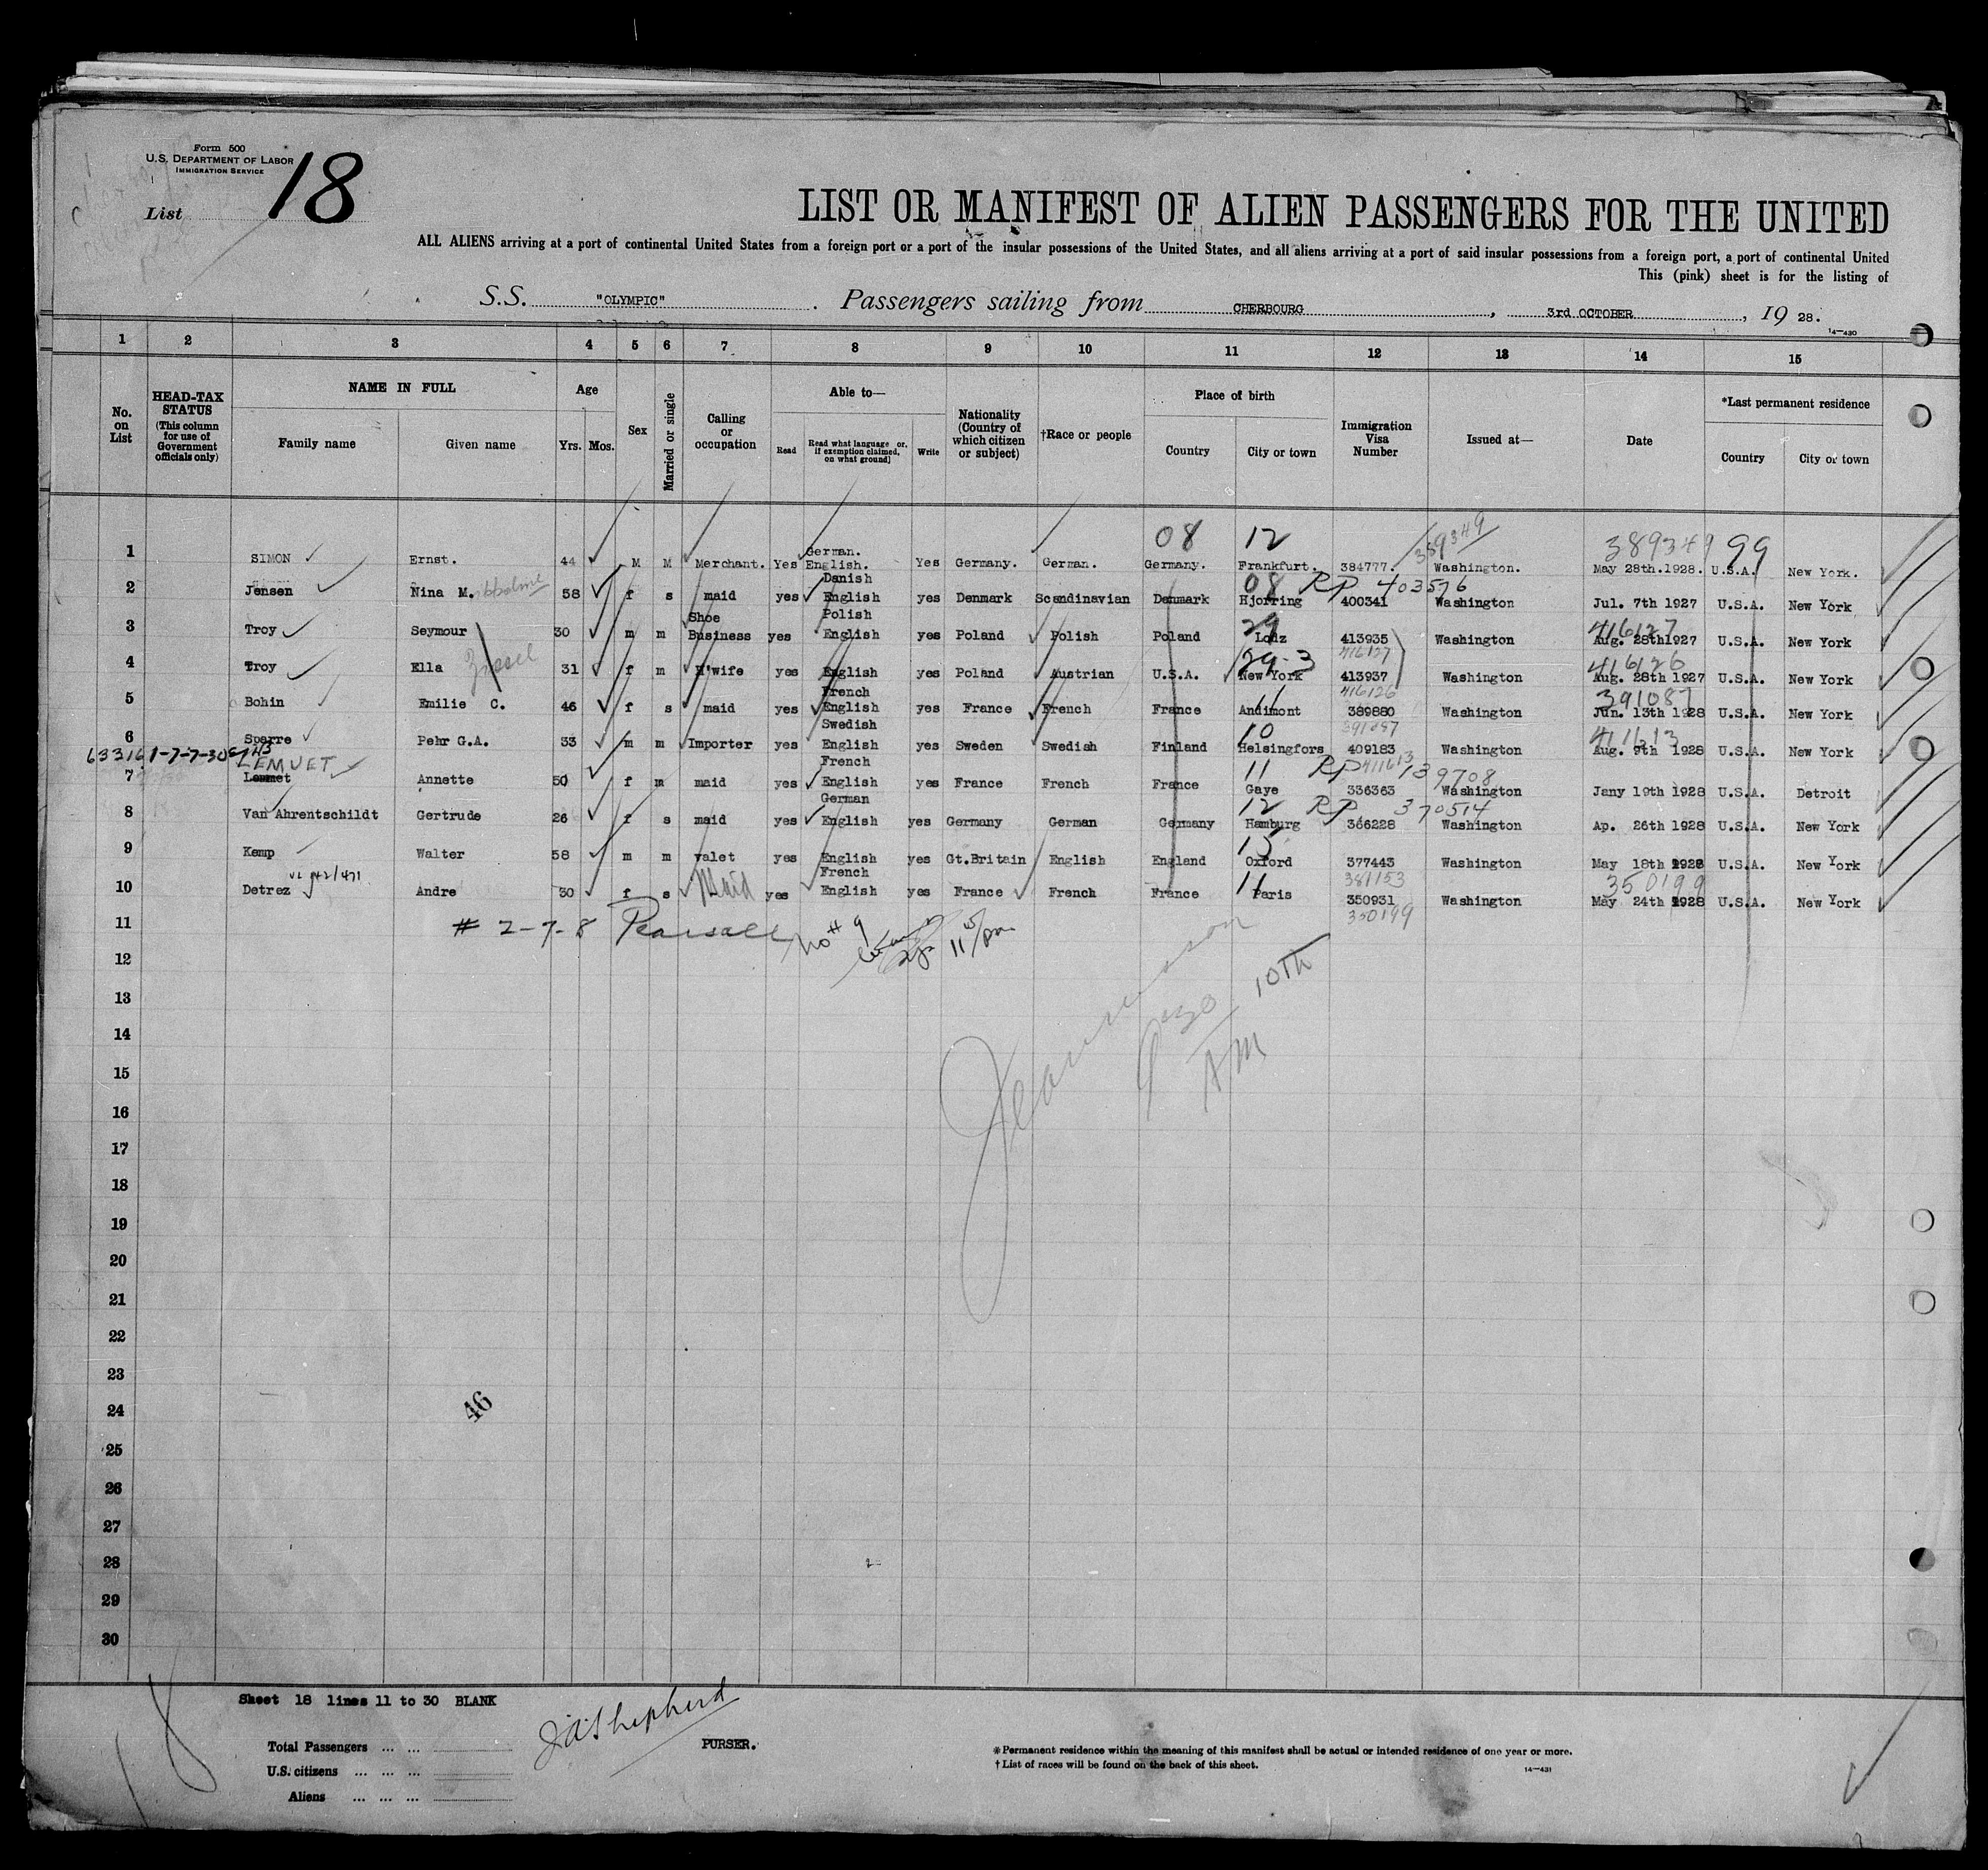 Form 500
U.S. DEPARTMENT OF LABOR
IMMIGRATION SERVICE
List 18
LIST OR MANIFEST OF ALIEN PASSENGERS FOR THE UNITED
ALL ALIENS arriving at a port of continental United States from a foreign port or a port of the insular possessions of the United States, and all aliens arriving at a port of said insular possessions from a foreign port, a port of continental United
This (pink) sheet is for the listing of
S.S. "OLYMPIC". Passengers sailing from CHERBOURG, 3rd OCTOBER, 19 28.
14-430
1 2 3 4 5 6 7 8 9 10 11 12 13 14 15
No. on List
HEAD-TAX STATUS (This column for use of Government officials only)
NAME IN FULL
Family name Given name
Age
Yrs. Mos.
Sex
Married or single
Calling or occupation
Able to—
Read Read what language or, if exemption claimed, on what ground] Write
Nationality (Country of which citizen or subject)
†Race or people
Place of birth
Country City or town
Immigration Visa Number
Issued at—
Date
*Last permanent residence
Country City or town
08 12 389349 389349 99
1 SIMON Ernst. 44 M M Merchant. Yes German. English. Yes Germany. German. Germany. Frankfurt. 384777. Washington. May 28th.1928. U.S.A. New York.
08 RP 403576
2 Jensen Nina M. 58 f s maid yes Danish English yes Denmark Scandinavian Denmark Hjorring 400341 Washington Jul. 7th 1927 U.S.A. New York
29 416127
3 Troy Seymour 30 m m Shoe Business yes Polish English yes Poland Polish Poland Lodz 413935 Washington Aug. 28th1927 U.S.A. New York
29-3 416127 416126
4 Troy Ella Zissel 31 f m H'wife yes English yes Poland Austrian U.S.A. New York 413937 Washington Aug. 28th 1927 U.S.A. New York
11 416126 391087
5 Bohin Emilie C. 46 f s maid yes French English yes France French France Andimont 389880 Washington Jun. 13th 1928 U.S.A. New York
10 391087 411613
6 Sparre Pehr G.A. 33 m m Importer yes Swedish English yes Sweden Swedish Finland Helsingfors 409183 Washington Aug. 9th 1928 U.S.A. New York
LEMUET 11 RP 411613 139708
7 Lemmet Annette 50 f m maid yes French English yes France French France Gaye 336363 Washington Jany 19th 1928 U.S.A. Detroit
12 RP 370514
8 Van Ahrentschildt Gertrude 26 f s maid yes German English yes Germany German Germany Hamburg 366228 Washington Ap. 26th 1928 U.S.A. New York
15
9 Kemp Walter 58 m m valet yes English yes Gt.Britain English England Oxford 377443 Washington May 18th 1928 U.S.A. New York
11 381153 350199
10 Detrez Andre 30 f s Maid yes French English yes France French France Paris 350931 Washington May 24th 1928 U.S.A. New York
350199
11 # 2-7-8 Pearsall No # 9
12
10TH
13
14
AM
15
16
17
18
19
20
21
22
23
24
46
25
26
27
28
29
30
Sheet 18 lines 11 to 30 BLANK
Total Passengers ... ...
U.S. citizens ... ... ...
Aliens ... ... ...
J.A. Shepherd
PURSER.
*Permanent residence within the meaning of this manifest shall be actual or intended residence of one year or more.
†List of races will be found on the back of this sheet.
14-431